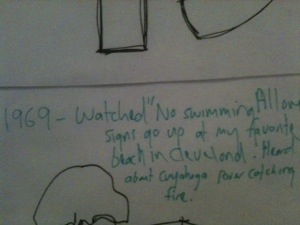 1969 - Watched "No swimming Allow
signs go up at my favorite
beach in Cleveland. Heard
about Cuyahuga River catching
fire.